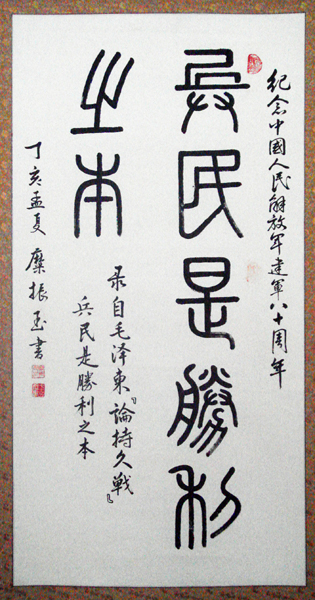 紀念中國人民解放军建軍八十周年
兵民是勝利
之本
录自毛泽東『論持久戰』
兵民是勝利之本
丁亥孟夏 糜振玉書